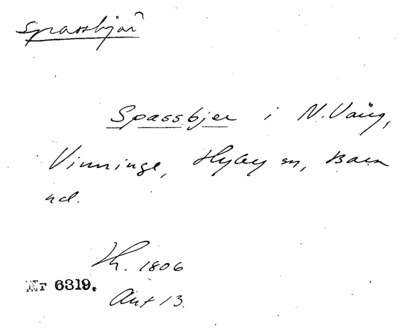 Spassbjär
Spassbjer i N. Vång,
Vinninge, Hyby sn, Bara
hd.
Lh. 1806
Nr 6319.
Akt 13.